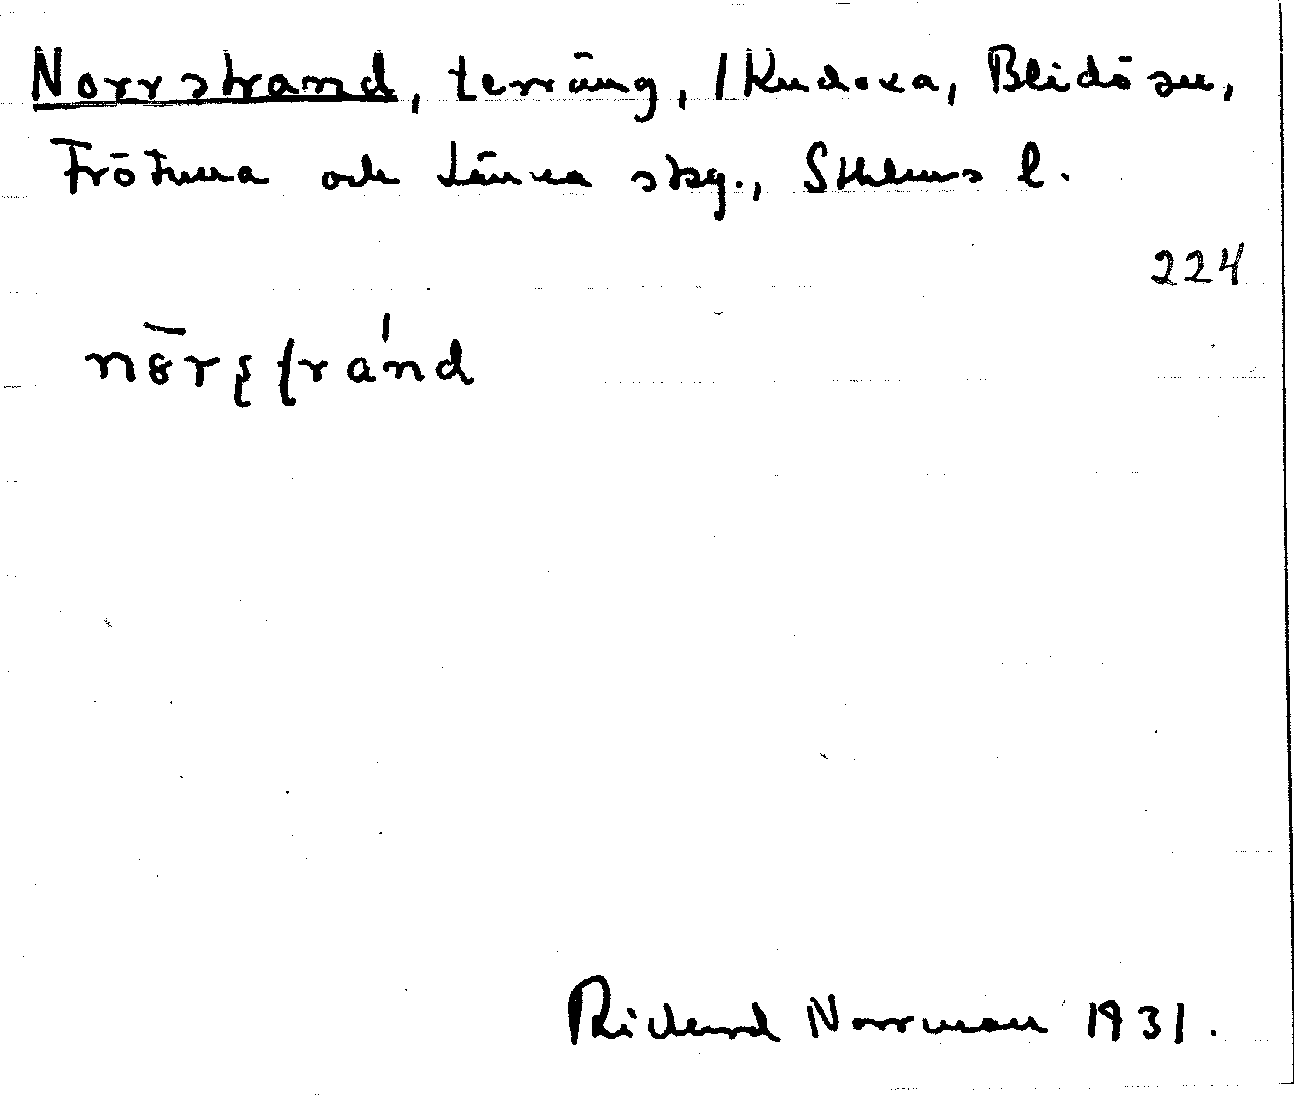 Norrstrand, terräng, /Kudoxa, Blidö sn,
Frötuna och Länna skg., Sthlms l.
224
Rickard Norrman 1931.